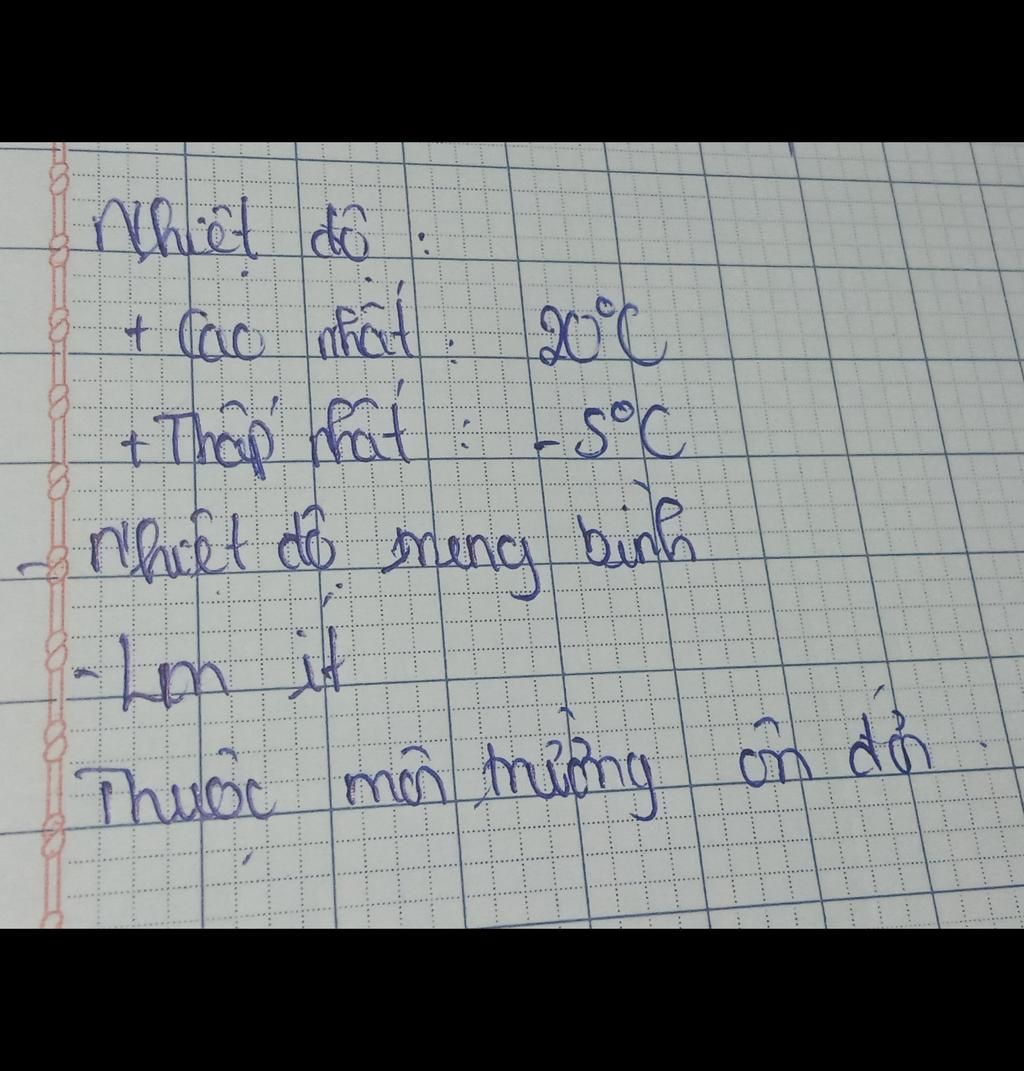 Nhiệt độ :
+ Cao nhất : 20°C
+ Thấp nhất : - 5°C
- Nhiệt độ trung bình
- Lớn ít
Thuộc môi trường ôn đới